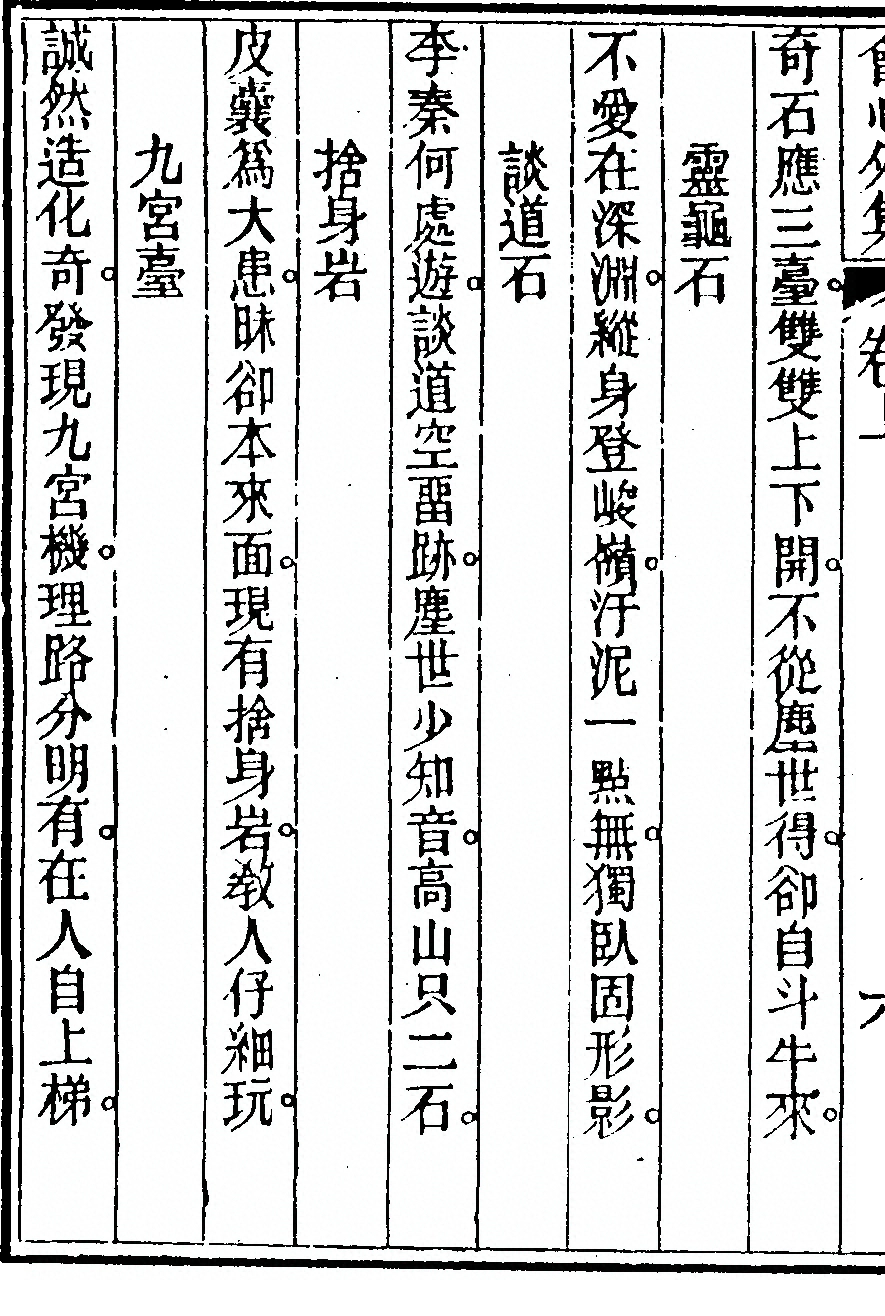 會心外集
卷上
六
奇石應三臺雙雙上下開不從塵世得卻自斗牛來
靈龜石
不愛在深淵縱身登峻嶺汙泥一點無獨臥固形影
談道石
李秦何處遊談道空畱跡塵世少知音高山只二石
捨身岩
皮囊爲大患昧卻本來面現有捨身岩教人仔細玩
九宮臺
誠然造化奇發現九宮機理路分明有在人自上梯